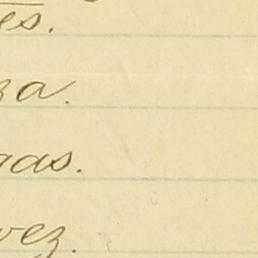 es.
za.
gas.
vez.